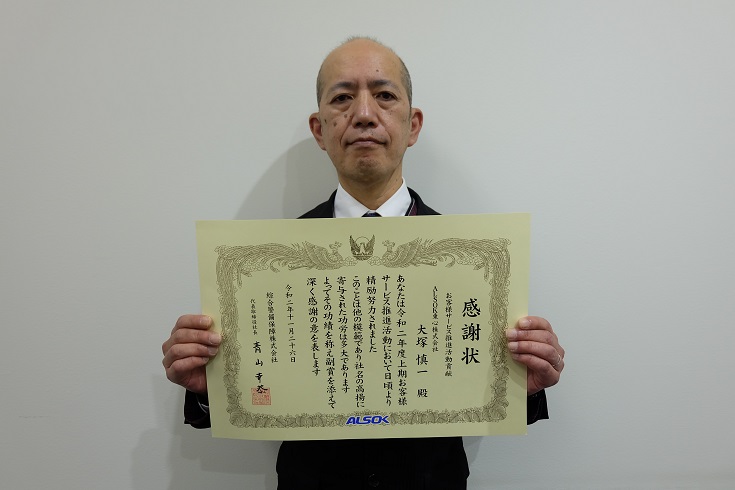 感謝状
お客様サービス推進活動貢献
ALSOK東心株式会社
大塚慎一 殿
あなたは令和二年度上期お客様
サービス推進活動において日頃より
精励努力されました
このことは他の模範であり社名の高揚に
寄与された功労は多大であります
よってその功績を称え副賞を添えて
深く感謝の意を表します
令和二年十一月二十六日
綜合警備保障株式会社
代表取締役社長
青山幸恭
ALSOK